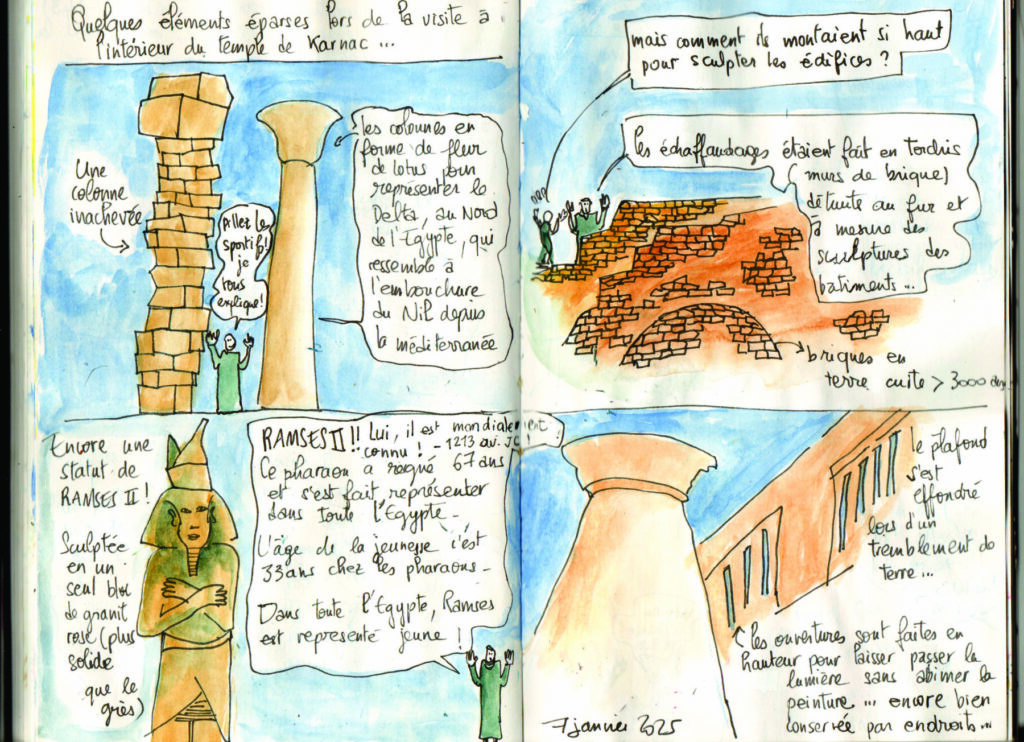 Quelques éléments éparses lors de la visite à
l'intérieur du temple de Karnac ...
Une
colonne
inachevée
Allez les
sportifs!
je
vous
explique!
les colonnes en
forme de fleur
de lotus pour
représenter le
Delta, au Nord
de l'Egypte, qui
ressemble à
l'embouchure
du Nil depuis
la méditerranée
mais comment ils montaient si haut
pour sculpter les édifices ?
les échaffaudages étaient fait en torchis
(murs de brique)
détruite au fur et
à mesure des
sculptures des
batiments ...
briques en
terre cuite > 3000 ans
Encore une
statut de
RAMSES II !
Sculptée
en un
seul bloc
de granit
rose (plus
solide
que le
grès)
RAMSES II !! Lui, il est mondialement
connu ! - 1213 av. JC !
Ce pharaon a régné 67 ans
et s'est fait représenter
dans toute l'Egypte -
L'âge de la jeunesse c'est
33 ans chez les pharaons -
Dans toute l'Egypte, Ramses
est representé jeune !
le plafond
s'est
effondré
lors d'un
tremblement de
terre ...
les ouvertures sont faites en
hauteur pour laisser passer la
lumière sans abimer la
peinture ... encore bien
conservée par endroits ...
7 janvier 2025